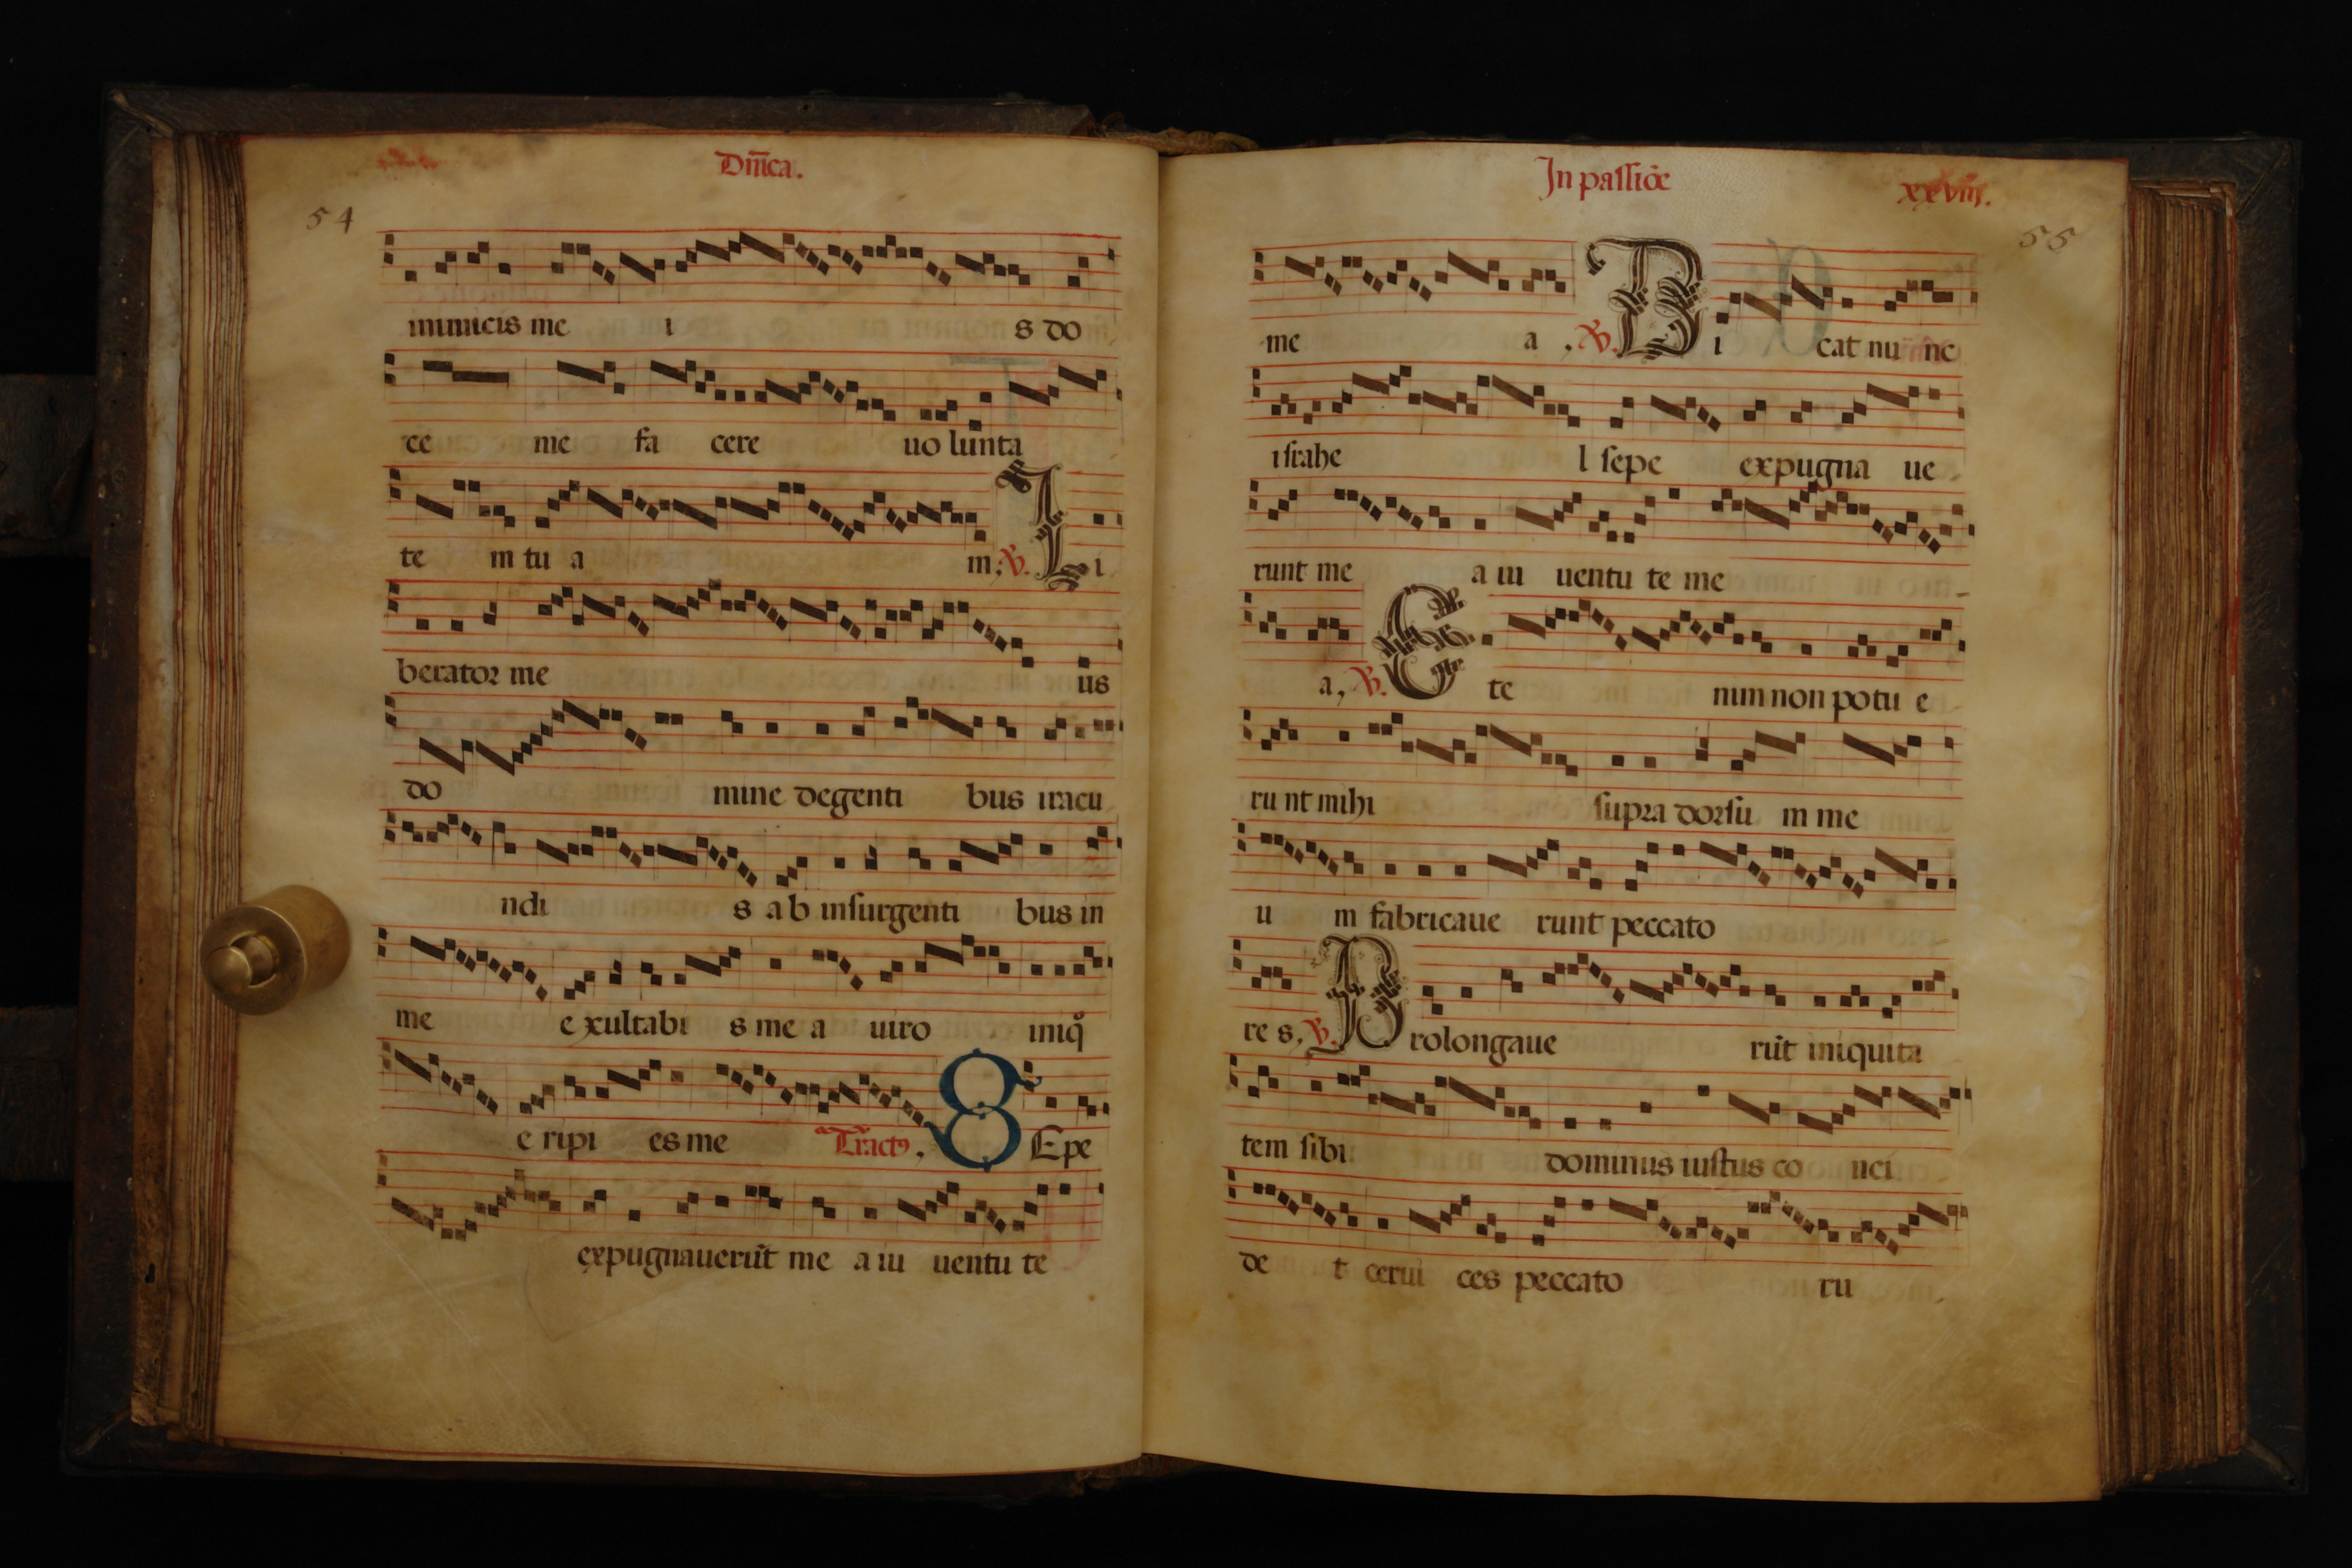 Dn̄ica.
54
inimicis me i s do
ce me fa cere uo lunta
te m tu a m. ℣. Li
berator me us
do mine degenti bus iracu
ndi s ab insurgenti bus in
me e xultabi s me a uiro iniqͦ
e ripi es me Tract9, SEpe
expugnauerūt me a iu uentu te
In passiōe xxviiij.
55
me a, ℣. Di cat nu nc
israhe l sepe expugna ue
runt me a iu uentu te me
a, ℣. E te nim non potu e
ru nt mihi supra dorsu m me
u m fabricaue runt peccato
re s, ℣. Prolongaue rūt iniquita
tem sibi dominus iustus co nci
de t cerui ces peccato ru